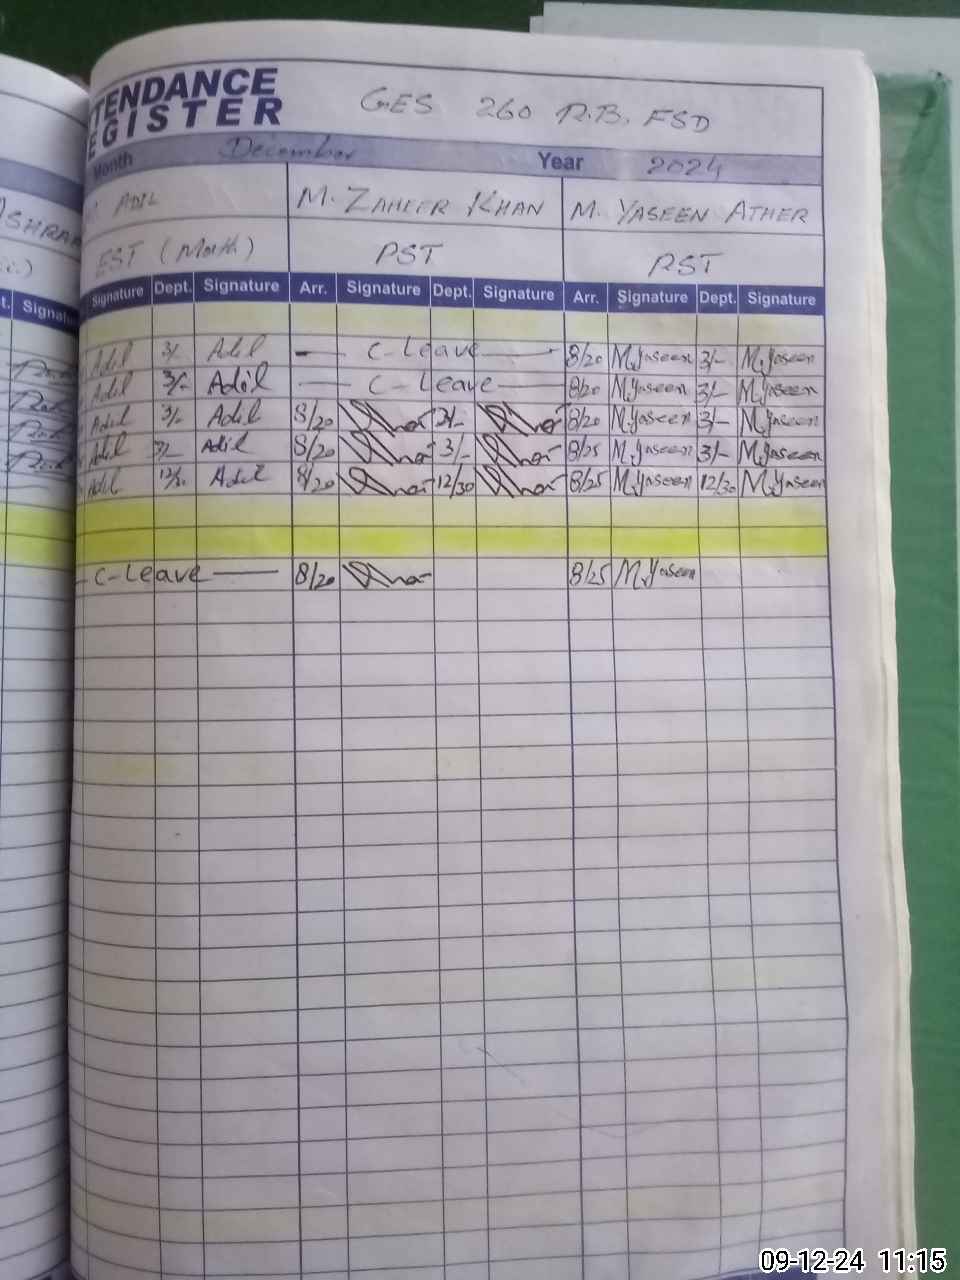 ATTENDANCE
REGISTER
GES 260 R.B. FSD
Month December Year 2024
ADIL M. ZAHEER KHAN M. YASEEN ATHER
EST (Math) PST PST
Signature Dept. Signature Arr. Signature Dept. Signature Arr. Signature Dept. Signature
Adil 3/- Adil C-Leave 8/20 M.Yaseen 3/- M.Yaseen
Adil 3/- Adil C-Leave 8/20 M.Yaseen 3/- M.Yaseen
Adil 3/- Adil 8/20 3/- 8/20 M.Yaseen 3/- M.Yaseen
Adil 3/- Adil 8/20 3/- 8/25 M.Yaseen 3/- M.Yaseen
Adil 12/30 Adil 8/20 12/30 8/25 M.Yaseen 12/30 M.Yaseen
C-Leave 8/20 8/25 M.Yaseen
09-12-24 11:15